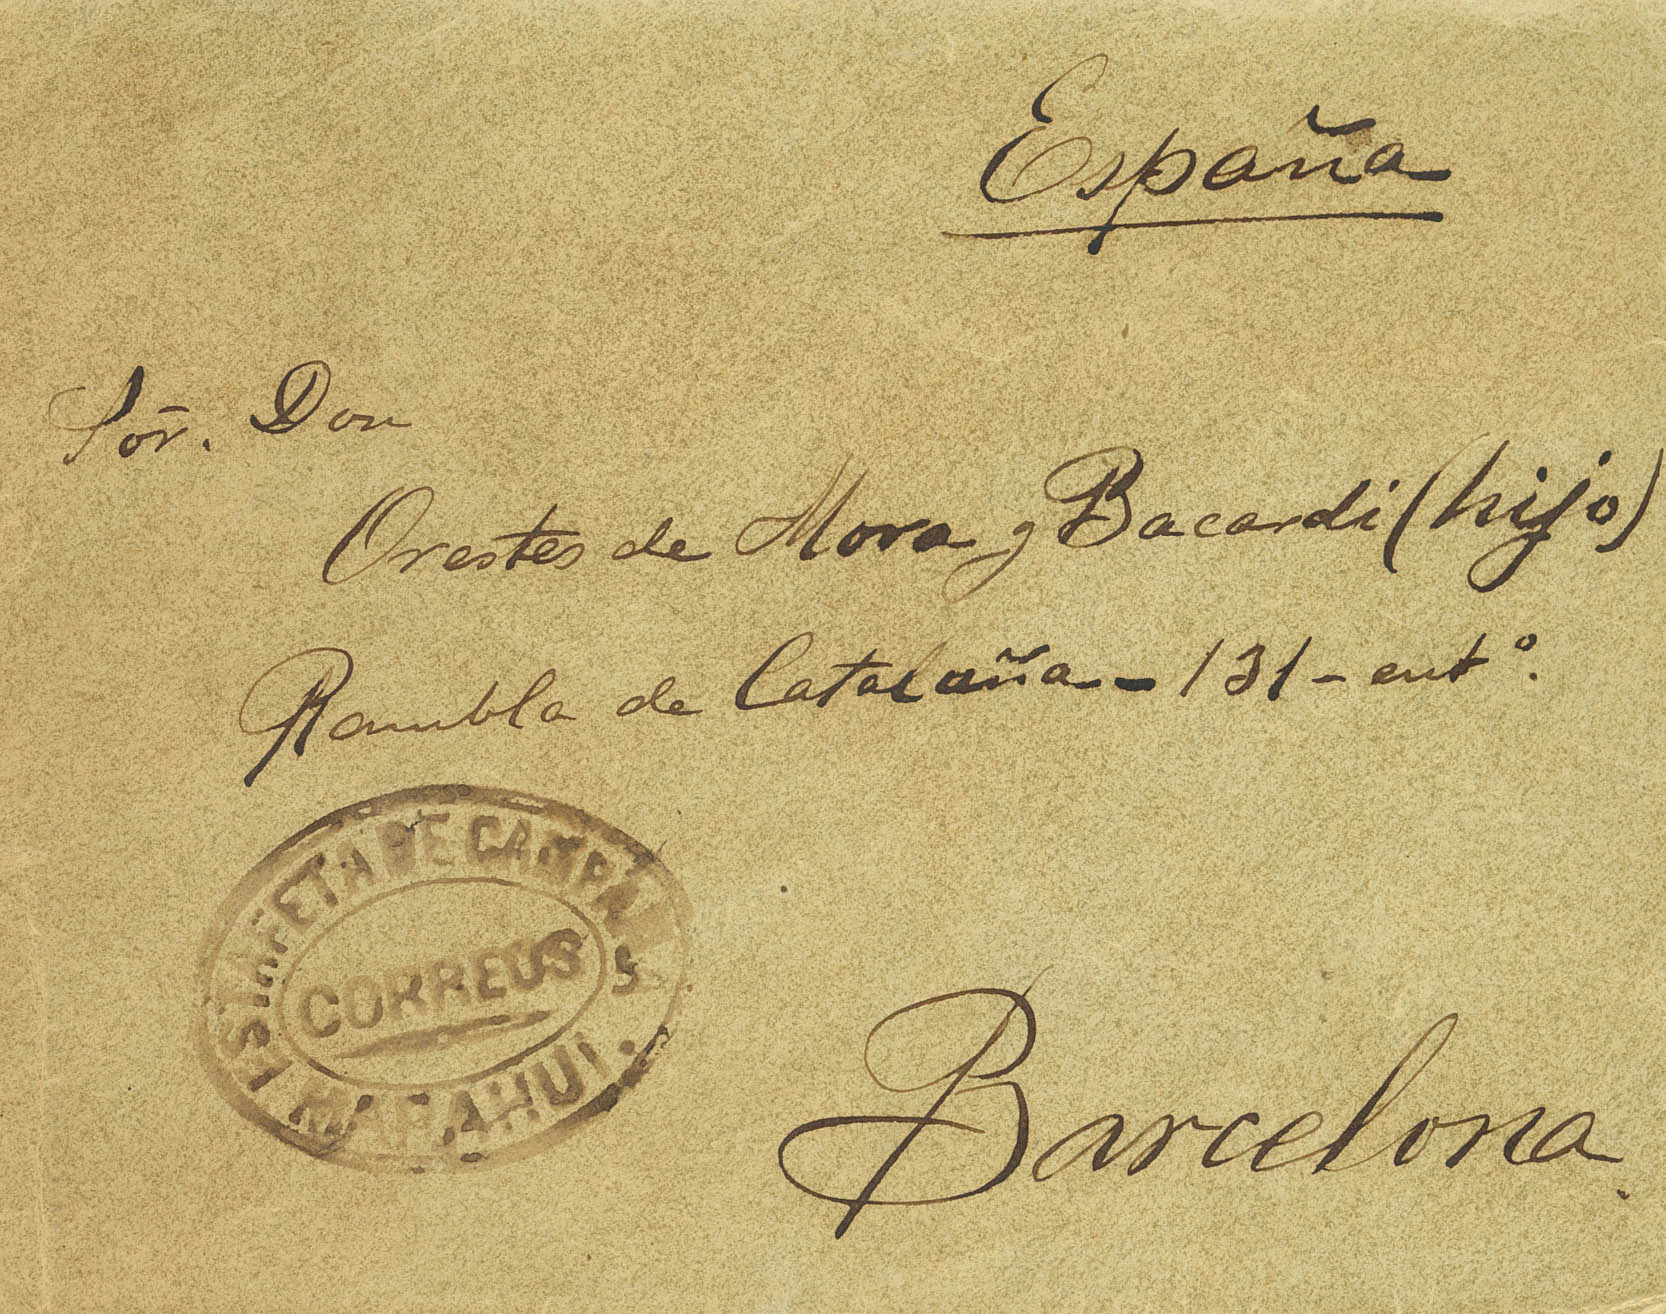 España
Sor. Don
Orestes de Mora y Bacardi (hijo)
Rambla de Cataluña - 131 - entº.
ESTAFETA DE CAMPAÑ
CORREOS
MARAHUI.
Barcelona.